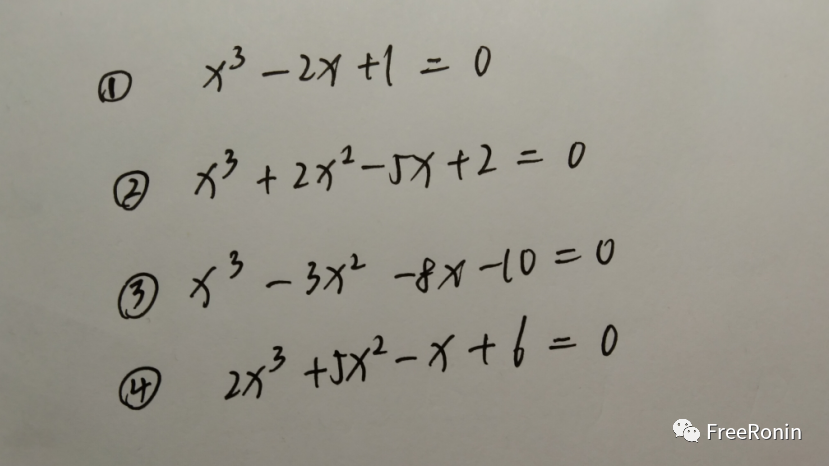 ① x³ - 2x + 1 = 0
② x³ + 2x² - 5x + 2 = 0
③ x³ - 3x² - 8x - 10 = 0
④ 2x³ + 5x² - x + 6 = 0
FreeRonin